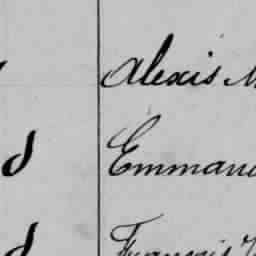 Alexis
d Emmanu
d François